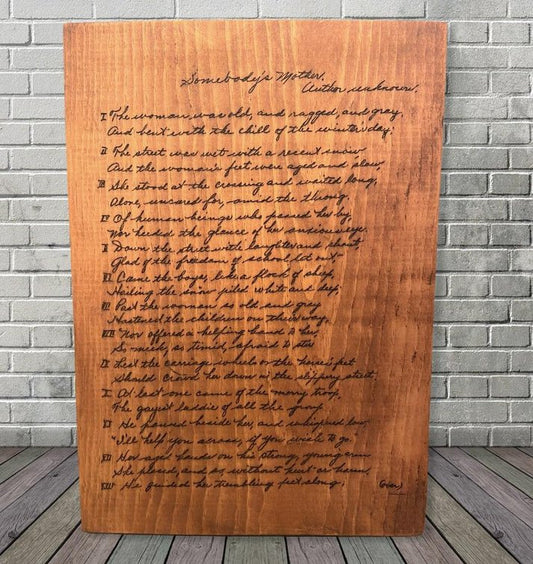 Somebody's Mother.
Author unknown.
I The woman was old, and ragged, and gray,
And bent with the chill of the winter day;
II The street was wet with a recent snow
And the woman's feet were aged and slow,
III She stood at the crossing and waited long,
Alone, uncared for, amid the throng,
IV Of human beings who passed her by,
Nor heeded the glance of her anxious eye.
V Down the street with laughter and shout,
Glad of the freedom of school let out,
VI Came the boys, like a flock of sheep,
Hailing the snow piled white and deep;
VII Past the woman so old and gray
Hastened the children on their way,
VIII Nor offered a helping hand to her,
So meek, so timid, afraid to stir
IX Lest the carriage wheels or the horses' feet
Should crowd her down in the slippery street;
X At last one came of the merry troop,
The gayest laddie of all the group
XI He paused beside her, and whispered low,
"I'll help you across, if you wish to go."
XII Her aged hands on his strong, young arm
She placed, and so, without hurt or harm,
XIII He guided her trembling feet along, (over)